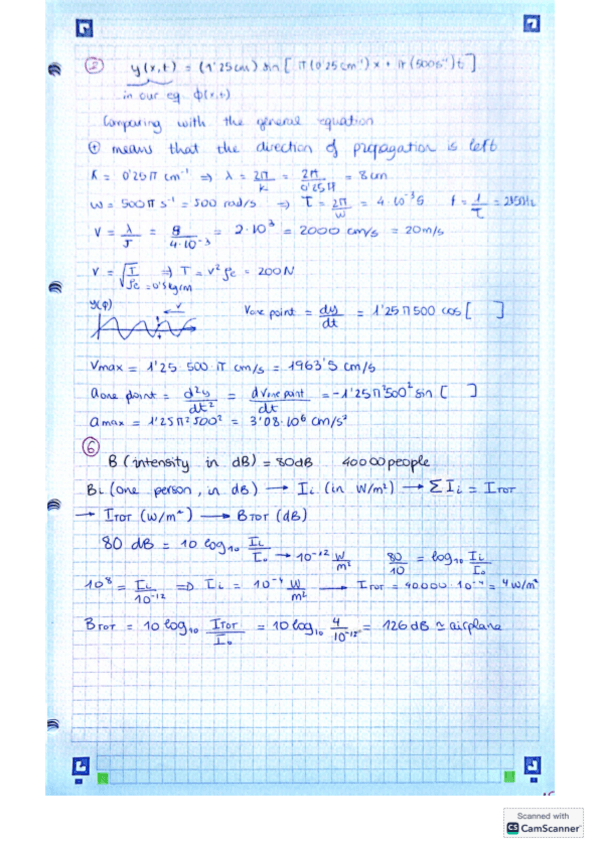 ② y(x,t) = (1'25cm) sin [ π(0'25cm⁻¹)x + π(500s⁻¹)t ]
in our eq φ(x,t)
Comparing with the general equation
⊕ means that the direction of propagation is left
K = 0'25π cm⁻¹ ⇒ λ = 2π/K = 2π/0'25π = 8cm
w = 500π s⁻¹ = 500 rad/s ⇒ T = 2π/w = 4·10⁻³s f = 1/T = 250Hz
V = λ/T = 8/4·10⁻³ = 2·10³ = 2000 cm/s = 20m/s
V = √T/ρe ⇒ T = v²ρe = 200N
y(φ) v Vone point = dy/dt = 1'25π500 cos[ ]
Vmax = 1'25·500·π cm/s = 1963'5 cm/s
aone point = d²y/dt² = dVone point/dt = -1'25π²500² sin[ ]
amax = 1'25π²500² = 3'08·10⁶ cm/s²
⑥
B (intensity in dB) = 80dB 40000people
Bi (one person, in dB) → Ii (in W/m²) → ΣIi = ITOT
→ ITOT (W/m²) → BTOT (dB)
80 dB = 10 log₁₀ Ii/I₀ → 10⁻¹² W/m² 80/10 = log₁₀ Ii/I₀
10⁸ = Ii/10⁻¹² ⇒ Ii = 10⁻⁴ W/m² → ITOT = 40000·10⁻⁴ = 4W/m²
BTOT = 10 log₁₀ ITOT/I₀ = 10 log₁₀ 4/10⁻¹² = 126 dB ≃ airplane
Scanned with
CS CamScanner